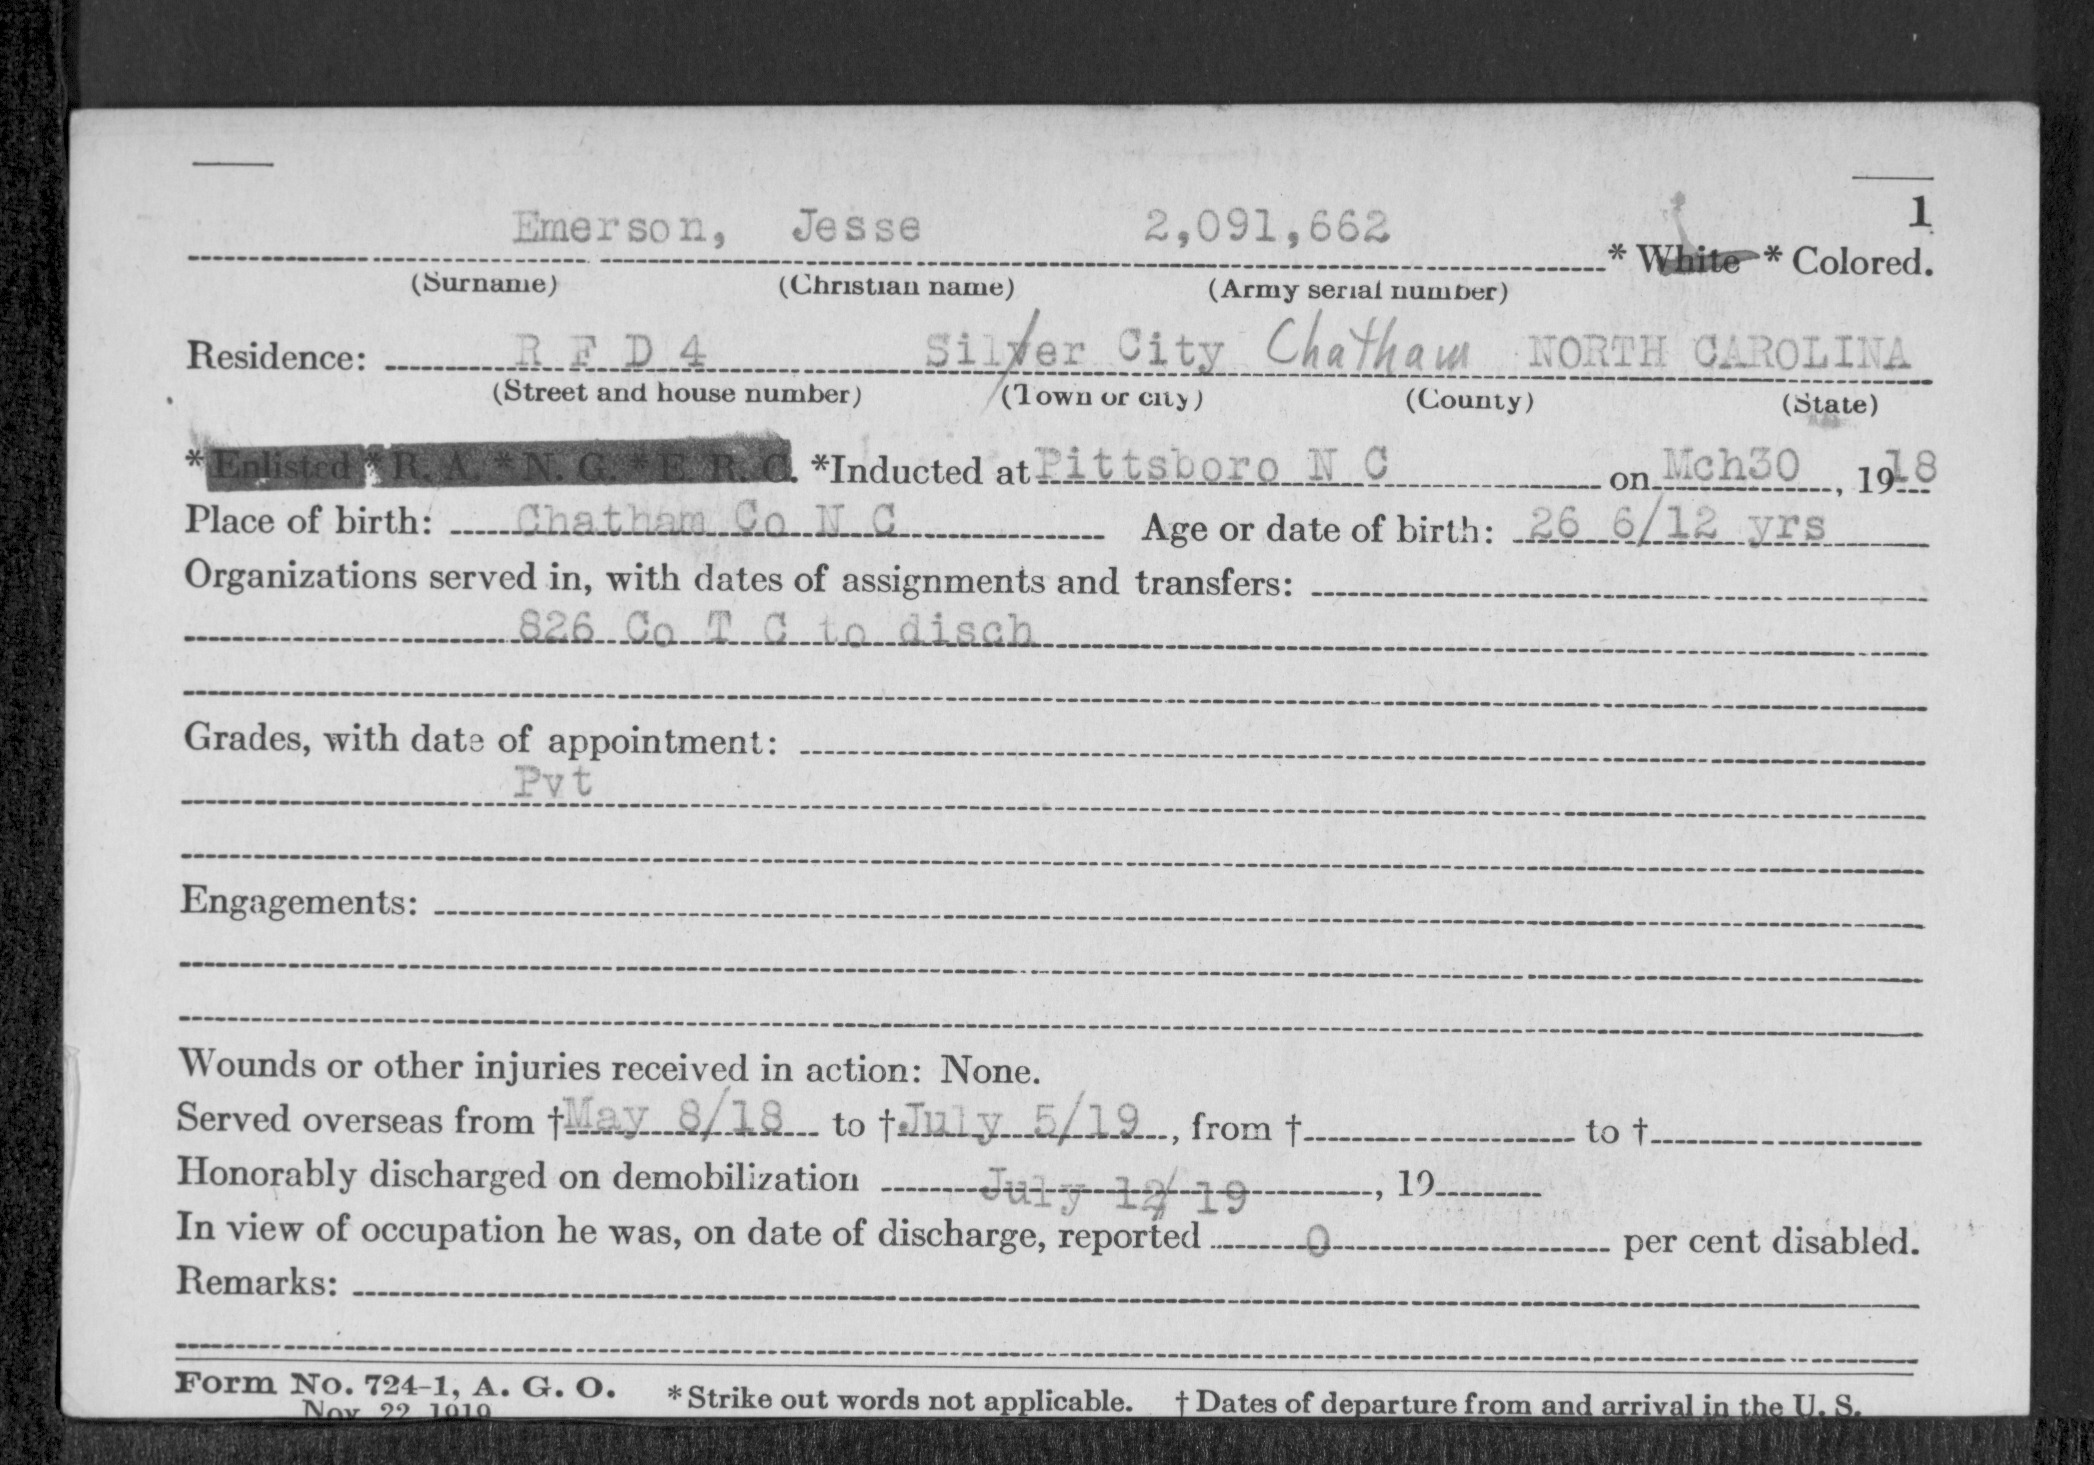 1
Emerson, Jesse 2,091,662 * White * Colored.
(Surname) (Christian name) (Army serial number)
Residence: R F D 4 Silver City Chatham NORTH CAROLINA
(Street and house number) (Town or city) (County) (State)
* Enlisted * R. A. * N. G. * E. R. C. *Inducted at Pittsboro N C on Mch30, 1918
Place of birth: Chatham Co N C Age or date of birth: 26 6/12 yrs
Organizations served in, with dates of assignments and transfers:
826 Co T C to disch
Grades, with date of appointment:
Pvt
Engagements:
Wounds or other injuries received in action: None.
Served overseas from †May 8/18 to †July 5/19, from † to †
Honorably discharged on demobilization July 12/19, 19
In view of occupation he was, on date of discharge, reported 0 per cent disabled.
Remarks:
Form No. 724-1, A. G. O. *Strike out words not applicable. † Dates of departure from and arrival in the U. S.
Nov. 22, 1919